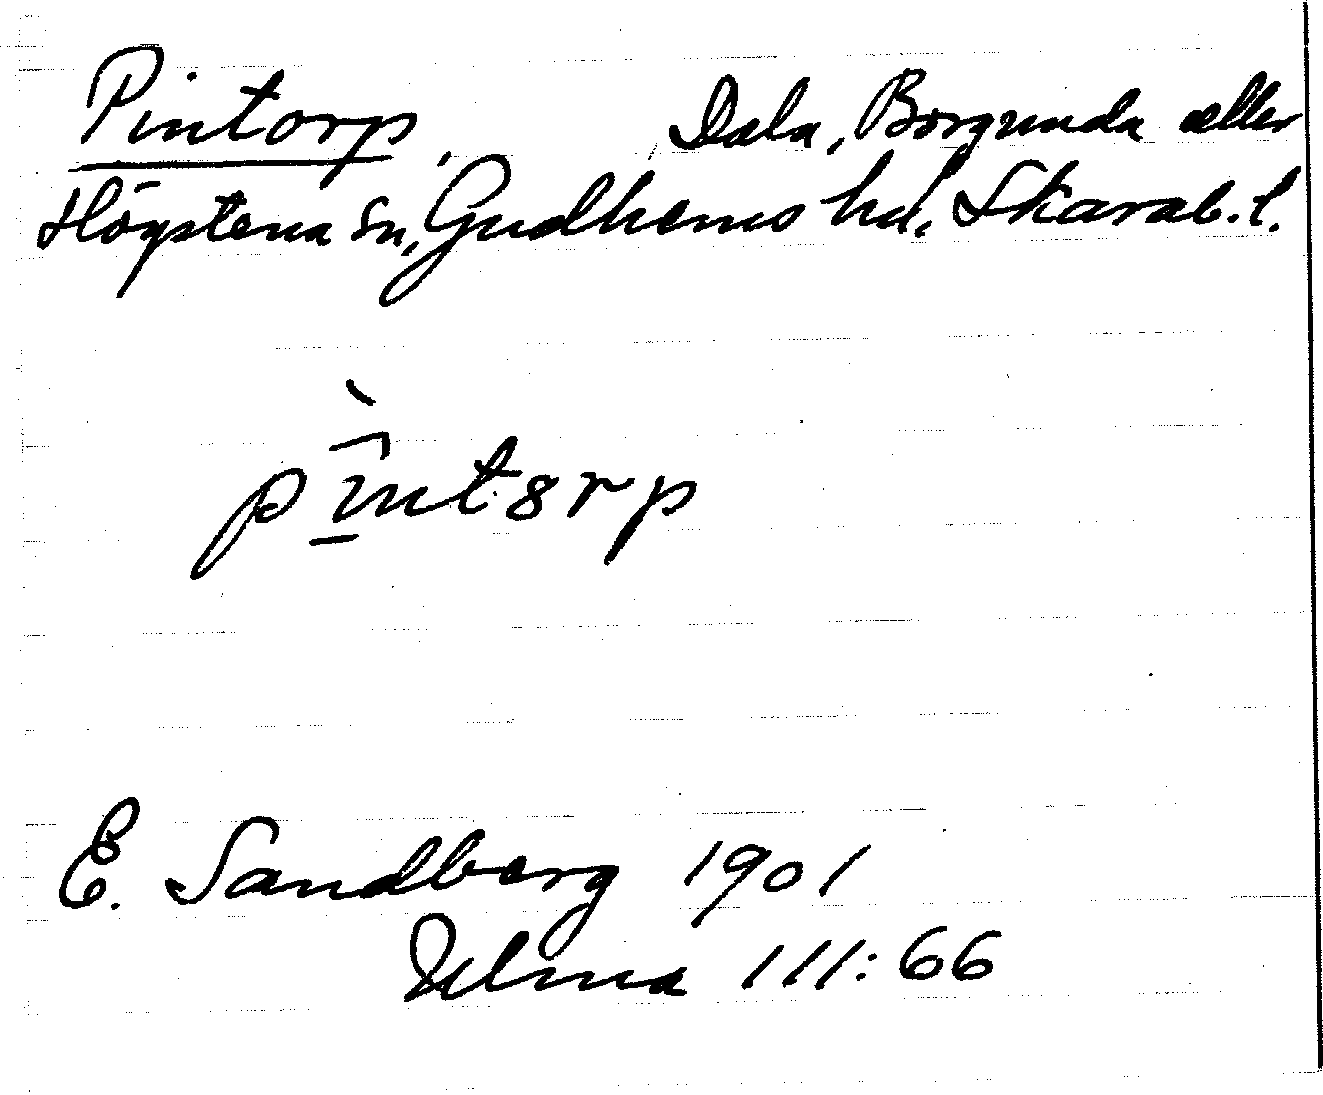 Pintorp. Dala, Borgunda eller
Högstena sn, Gudhems hd, Skarab. l.
pintȣrp
E. Sandberg 1901
Ulma 111:66